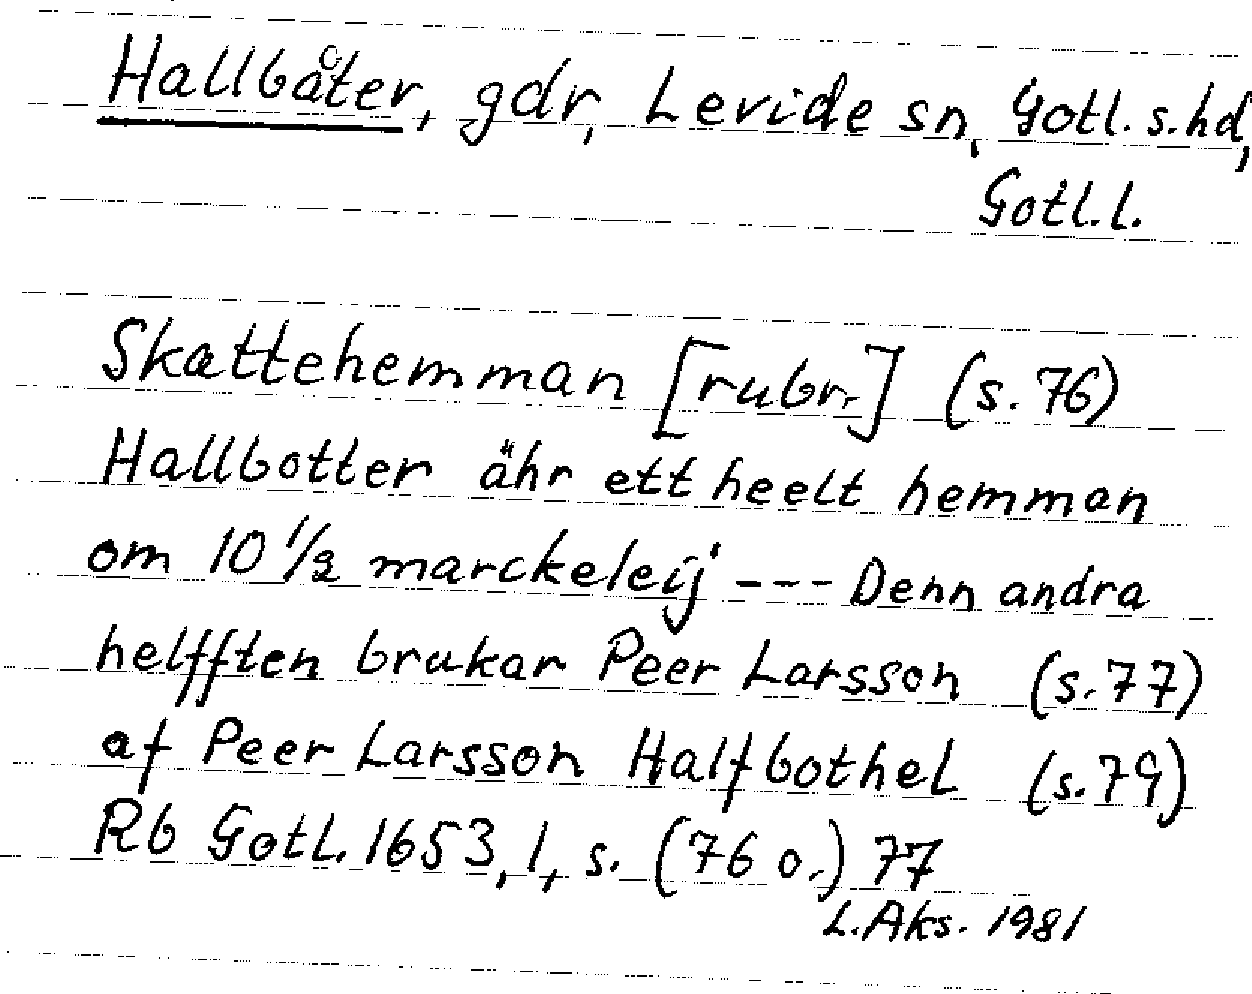 Hallbåter, gdr, Levide sn, Gotl. s. hd,
Gotl. l.
Skattehemman [rubr.] (s. 76)
Hallbotter ähr ett heelt hemman
om 10 1/2 marckeleij --- Denn andra
helfften brukar Peer Larsson (s. 77)
af Peer Larsson Halfbothel (s. 79)
Rb Gotl. 1653, 1, s. (76 o.) 77
L. Aks. 1981